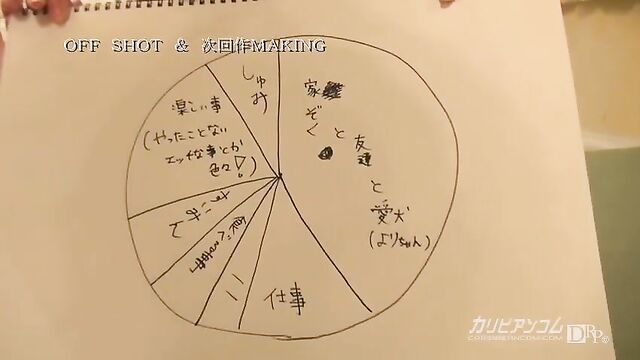 OFF SHOT & 次回作MAKING
しゅみ
家ぞくと友達と愛犬
(よりちゃん)
楽しい事
(やったことない
エッチな事とか
色々!)
仕事
カリビアンコム
CARIBBEANCOM.COM
DRP